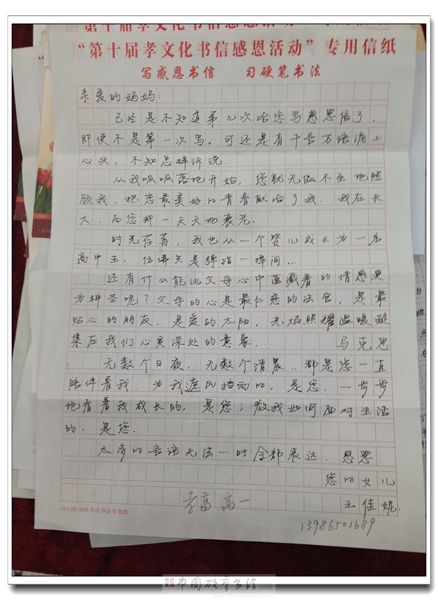 "第十届孝文化书信感恩活动"专用信纸
写感恩书信 习硬笔书法
亲爱的妈妈:
已经是不知道第几次给您写感恩信了,
即使不是第一次写。可还是有千言万语涌上
心头,不知怎样诉说。
从我呱呱落地开始,您就无微不至地照
顾我。把您最美好的青春献给了我。我在长
大,而您那一天天地衰老。
时光荏苒,我也从一个婴儿成长为一名
高中生。仿佛只是弹指一瞬间...
还有什么能比父母心中蕴藏着的情感更
为神圣呢?父母的心是最仁慈的法官,是最
贴心的朋友,是爱的太阳,光焰照耀温暖凝
集在我们心灵深处的意象 马克思
无数个日夜,无数个清晨,都是您一直
陪伴着我。为我遮风挡雨的,是您。一步步
地看着我成长的,是您;教我如何面对生活
的,是您。
太多的言语无法一时全部表达。感恩。
您的女儿
王佳妮
孝高 高一
13986501689
中国